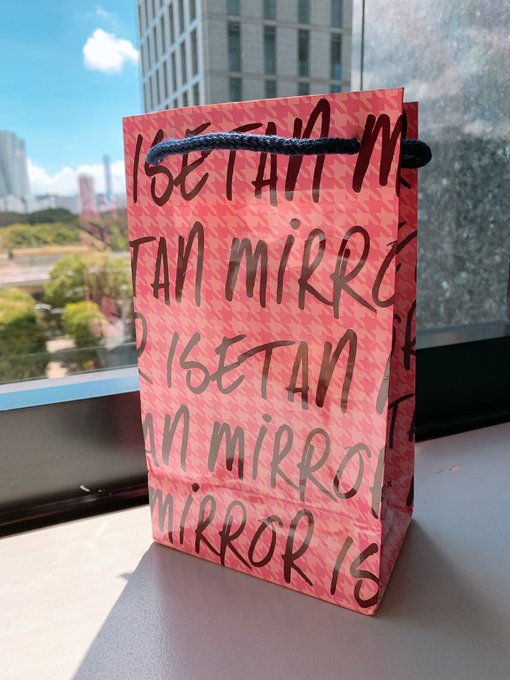 ISETAN M
TAN MiRRO
R ISETAN M
AN MiRROR
MiRROR IS